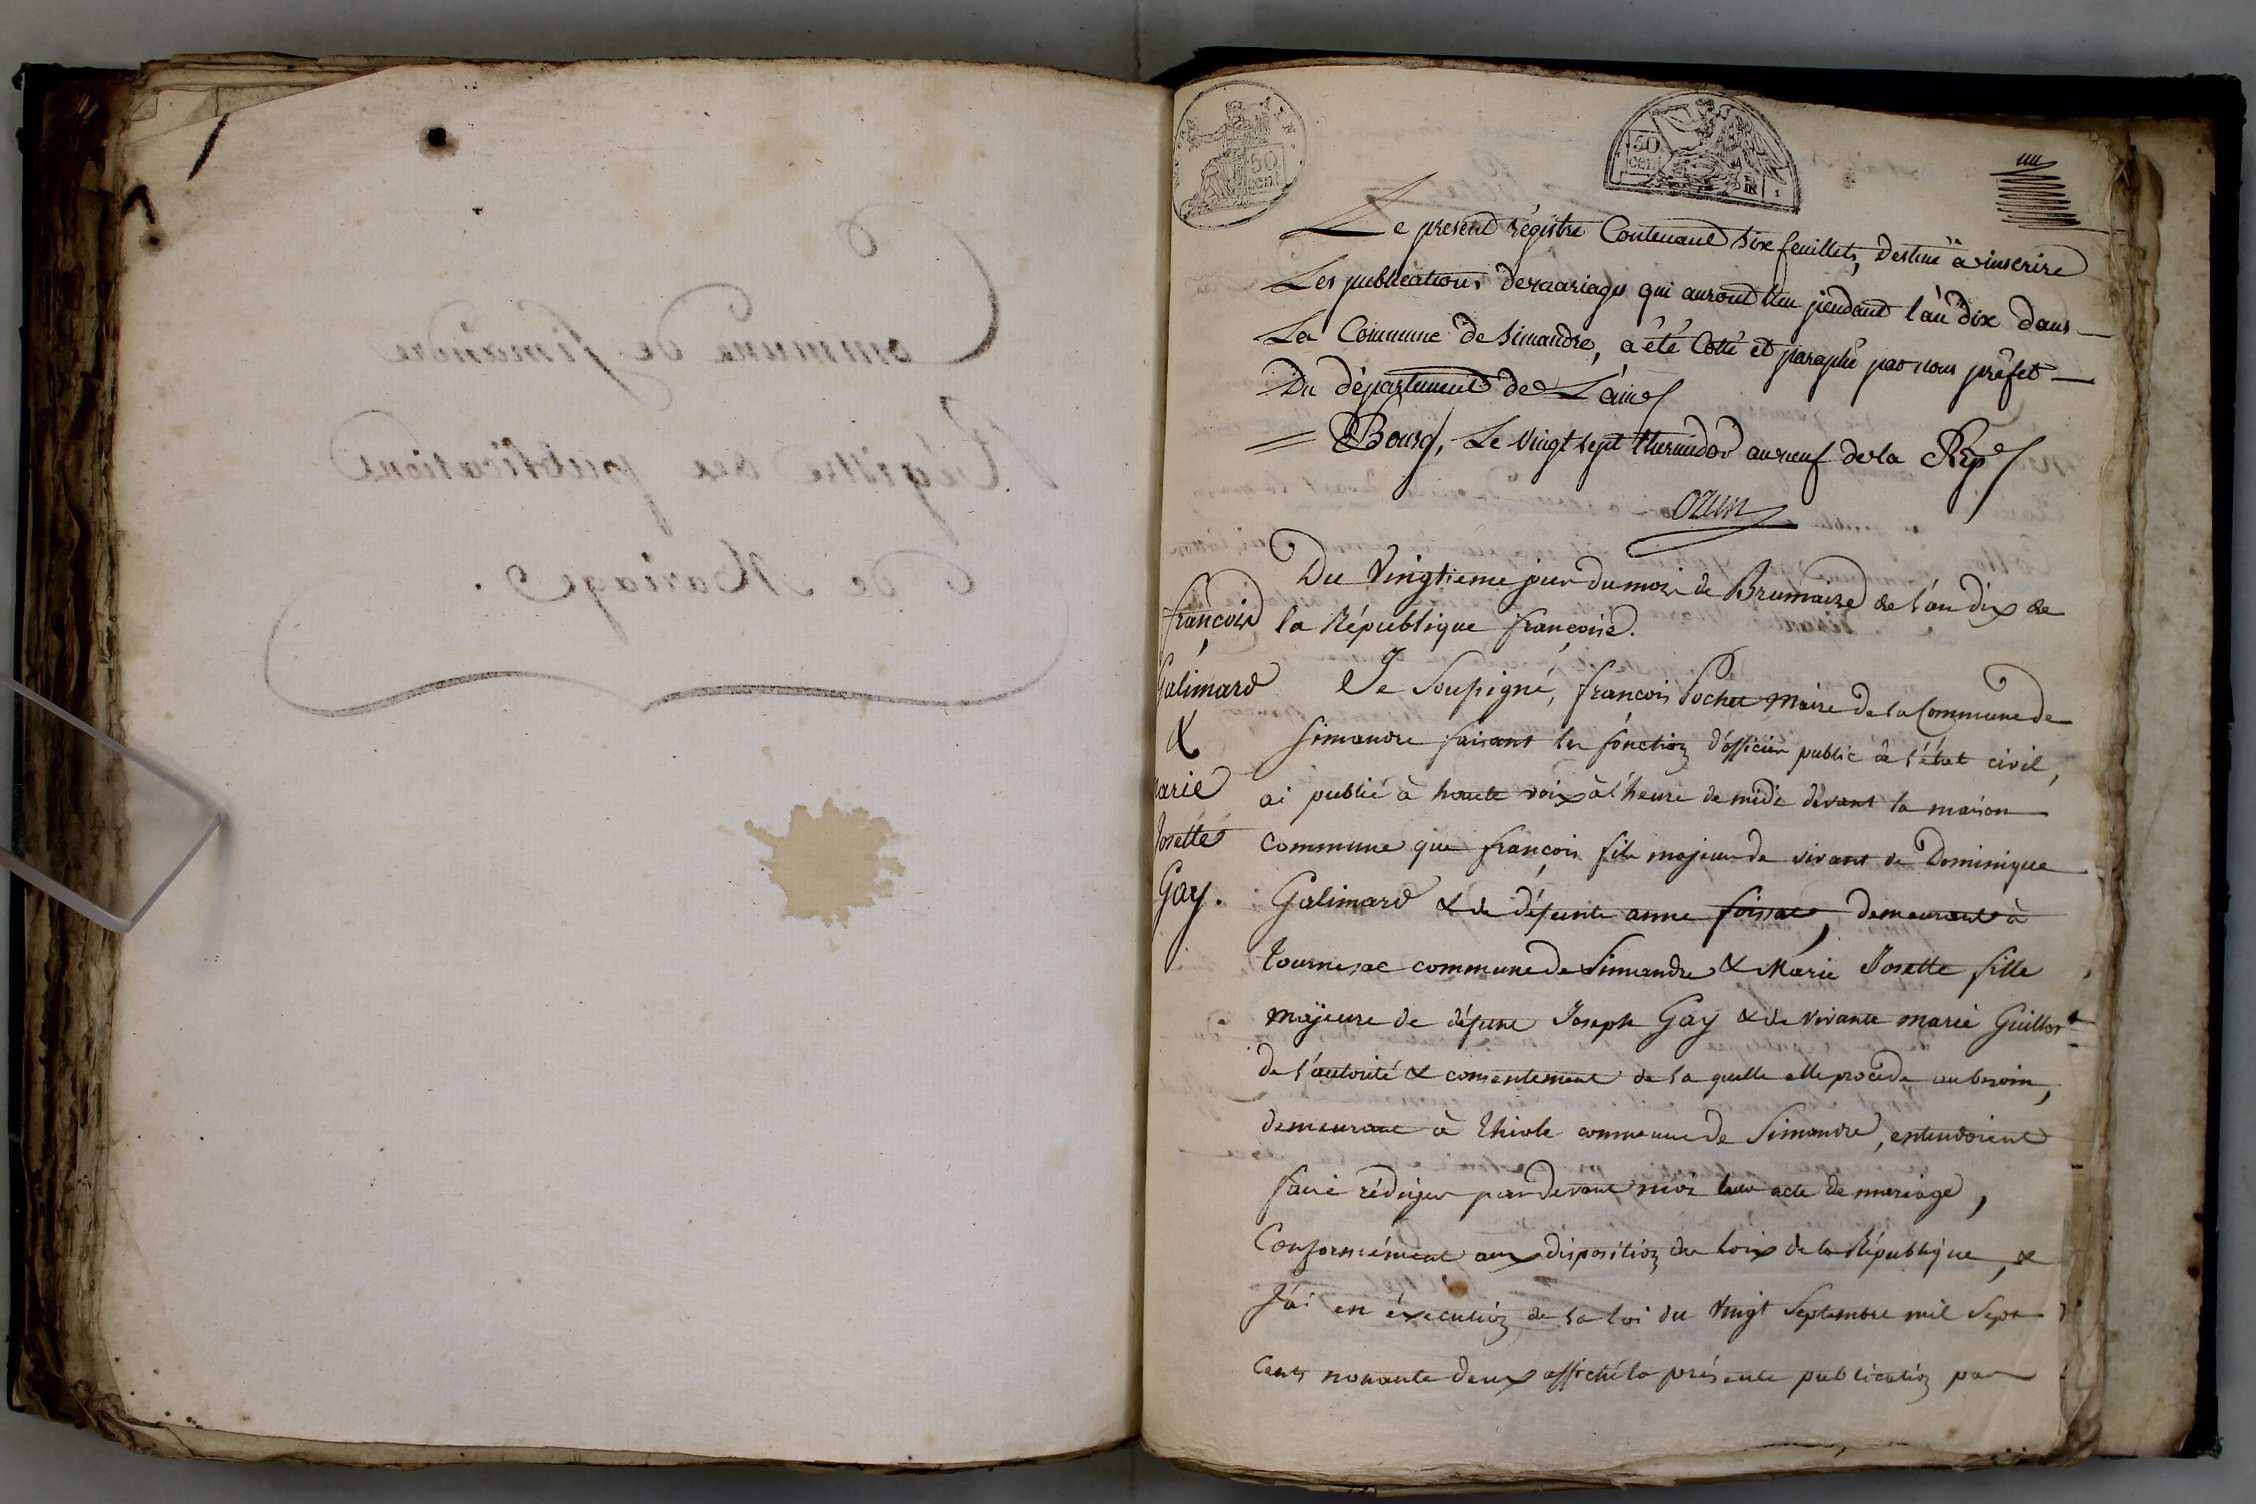 Commune de Simandre
Régistre des publications
de Mariages.
50
cent
50
cent
Le present régistre Contenant six feuillets, destiné à inscrire
Les publications de mariages qui auront lieu pendant l'an dix dans
La Commune de Simandre, a été Cotté et paraphé par nous préfet
Du département de L'ain
Bourg, Le Vingt sept thermidor an neuf de la Rép.
ozun
Du Vingtieme jour du mois de Brumaire de l'an dix de
la République françoise.
françois
Galimard
&
Marie
Josette
Gay.
Je Soussigné, françois Pochet maire de la Commune de
Simandre faisant les fonction d'officier public de l'état civil,
ai publié à haute voix à l'heure de midi devant la maison
commune que françois fils majeur de vivant de Dominique
Galimard & de défunte anne foissac, demeurant à
tournesac commune de Simandre & Marie Josette fille
majeure de défunt Joseph Gay & de vivante marie Guillot
de l'autorité & consentement de la quelle elle procède au besoin,
demeurant à thiole commune de Simandre, entendoient
faire rédiger pardevant moi leur acte de mariage,
Conformément aux disposition des loix de la République, &
J'ai en éxecution de la loi du Vingt Septembre mil Sept
Cents nonante deux affiché la présente publication par